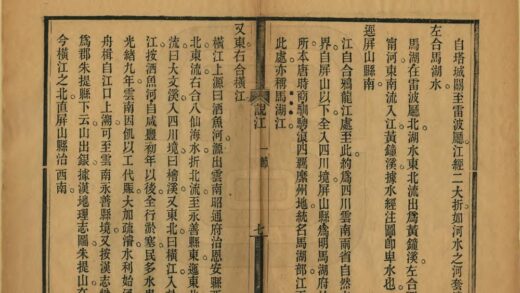 自塔城關至雷波廳江經二大折如河之河套
左合馬湖水
馬湖在雷波廳北湖水東北流出爲黃鐘溪左合
甯河東南流入江黃鐘溪據水經注圖卽卑水也
逕屏山縣南
江自合鴉龍江處至此約爲四川雲南兩省自然
界自屏山以下全入四川境屏山縣爲明馬湖府
所本唐時商馴騁浪四羈縻州地統名馬湖部江
此處亦稱馬湖江
說江
一
七
又東右合橫江
橫江上源曰洒魚河源出雲南昭通府治恩安縣西
北東流右合八仙海水折北流至永善縣東迤東北
流曰大文溪入四川境曰檜溪又東北曰橫江入
江按洒魚河自咸豐初年以後全行淤塞民多水
光緒九年雲南因飢以工代賑大加疏濬水利始
舟楫自江口上溯可至雲南永善縣境又按漢志
爲郡朱提縣下云山出銀據漢地理志圖朱提山在
今橫江之北直屏山縣治西南